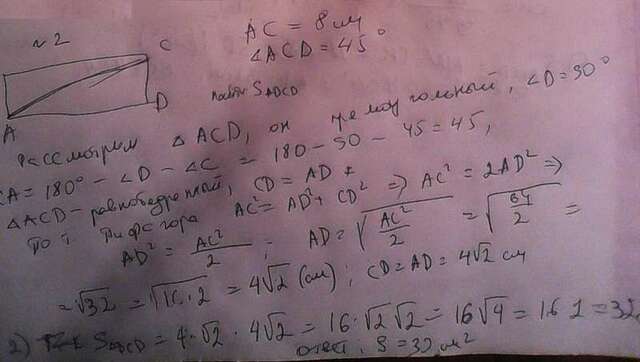 ~ 2
AC = 8 см
∠ACD = 45°
C
A
D
найти SABCD
Рассмотрим △ ACD, он прямоугольный, ∠D = 90°
∠A = 180° - ∠D - ∠C = 180 - 90 - 45 = 45,
△ACD - равнобедренный, CD = AD
По т. Пифагора AC² = AD² + CD² ⇒ AC² = 2AD² ⇒
AD² = AC²/2 ; AD = √(AC²/2) = √(64/2) =
= √32 = √16·2 = 4√2 (см) ; CD = AD = 4√2 см
2) SABCD = 4·√2 · 4√2 = 16·√2√2 = 16√4 = 16 2 = 32.
ответ: S = 32 см²